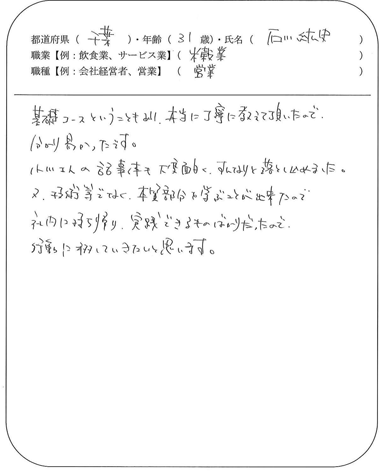 都道府県（ 千葉 ）・年齢（ 31 歳）・氏名（ 石川 ）
職業【例：飲食業、サービス業】（ 職業 ）
職種【例：会社経営者、営業】（ 営業 ）
基礎コースということもあり、本当に丁寧に教えて頂いたので、
分かり易かったです。
さんの 話事体も大変面白く、すんなりと落とし込めました。
又、技術等でなく、本質部分を学ぶことが出来たので
社内に持ち帰り、実践できるものばかりだったので、
行動に移していきたいと思います。